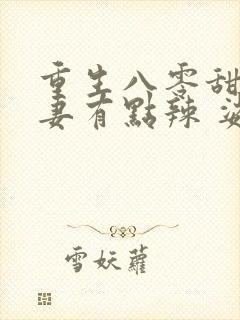 重生八零甜
妻有點辣
雪妖蘿